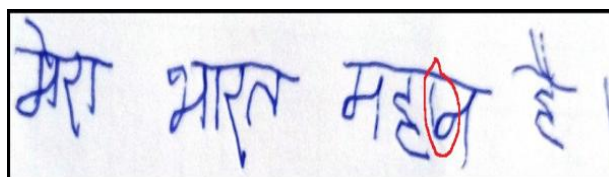 मेरा भारत महान है ।